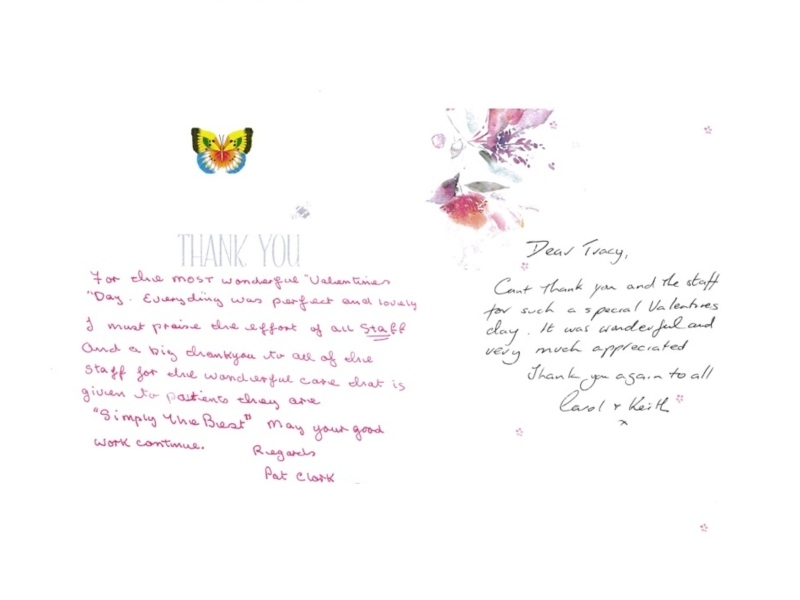 THANK YOU
For the MOST wonderful "Valentines
"Day. Everything was perfect and lovely
I must praise the effort of all Staff
And a big thankyou to all of the
staff for the wonderful care that is
given to patients they are
"Simply the Best" May your good
work continue.
Regards
Pat Clark
Dear Tracy,
Cant thank you and the staff
for such a special Valentines
day. It was wonderful and
very much appreciated
Thank you again to all
Carol + Keith
x